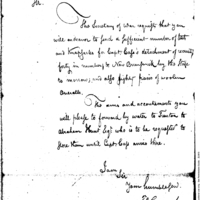 Sir.
The Secretary of War requests that you
will endeavor to send a sufficient number of tents
and knapsacks for Capt Cass's detachment of twenty
forty in number to New Brunswick by the Stage
to morrow, and also fifty pairs of woolen
overalls.
The arms and accoutrements you
will please to forward by water to Trenton to
Abraham Hunt Esqr who is to be requested to
store them until Capt Cass arrive there.
I am
Sir
Your humble Servt